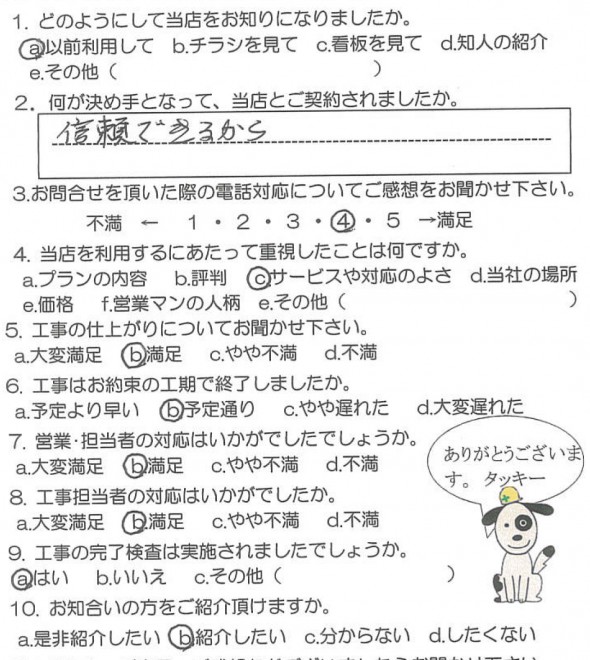 1. どのようにして当店をお知りになりましたか。
a.以前利用して b.チラシを見て c.看板を見て d.知人の紹介
e.その他（ ）
2. 何が決め手となって、当店とご契約されましたか。
信頼できるから
3.お問合せを頂いた際の電話対応についてご感想をお聞かせ下さい。
不満 ← 1・2・3・4・5 →満足
4. 当店を利用するにあたって重視したことは何ですか。
a.プランの内容 b.評判 c.サービスや対応のよさ d.当社の場所
e.価格 f.営業マンの人柄 e.その他（ ）
5. 工事の仕上がりについてお聞かせ下さい。
a.大変満足 b.満足 c.やや不満 d.不満
6. 工事はお約束の工期で終了しましたか。
a.予定より早い b.予定通り c.やや遅れた d.大変遅れた
7. 営業・担当者の対応はいかがでしたでしょうか。
a.大変満足 b.満足 c.やや不満 d.不満
ありがとうございま
す。 タッキー
8. 工事担当者の対応はいかがでしたか。
a.大変満足 b.満足 c.やや不満 d.不満
9. 工事の完了検査は実施されましたでしょうか。
a.はい b.いいえ c.その他（ ）
10. お知合いの方をご紹介頂けますか。
a.是非紹介したい b.紹介したい c.分からない d.したくない